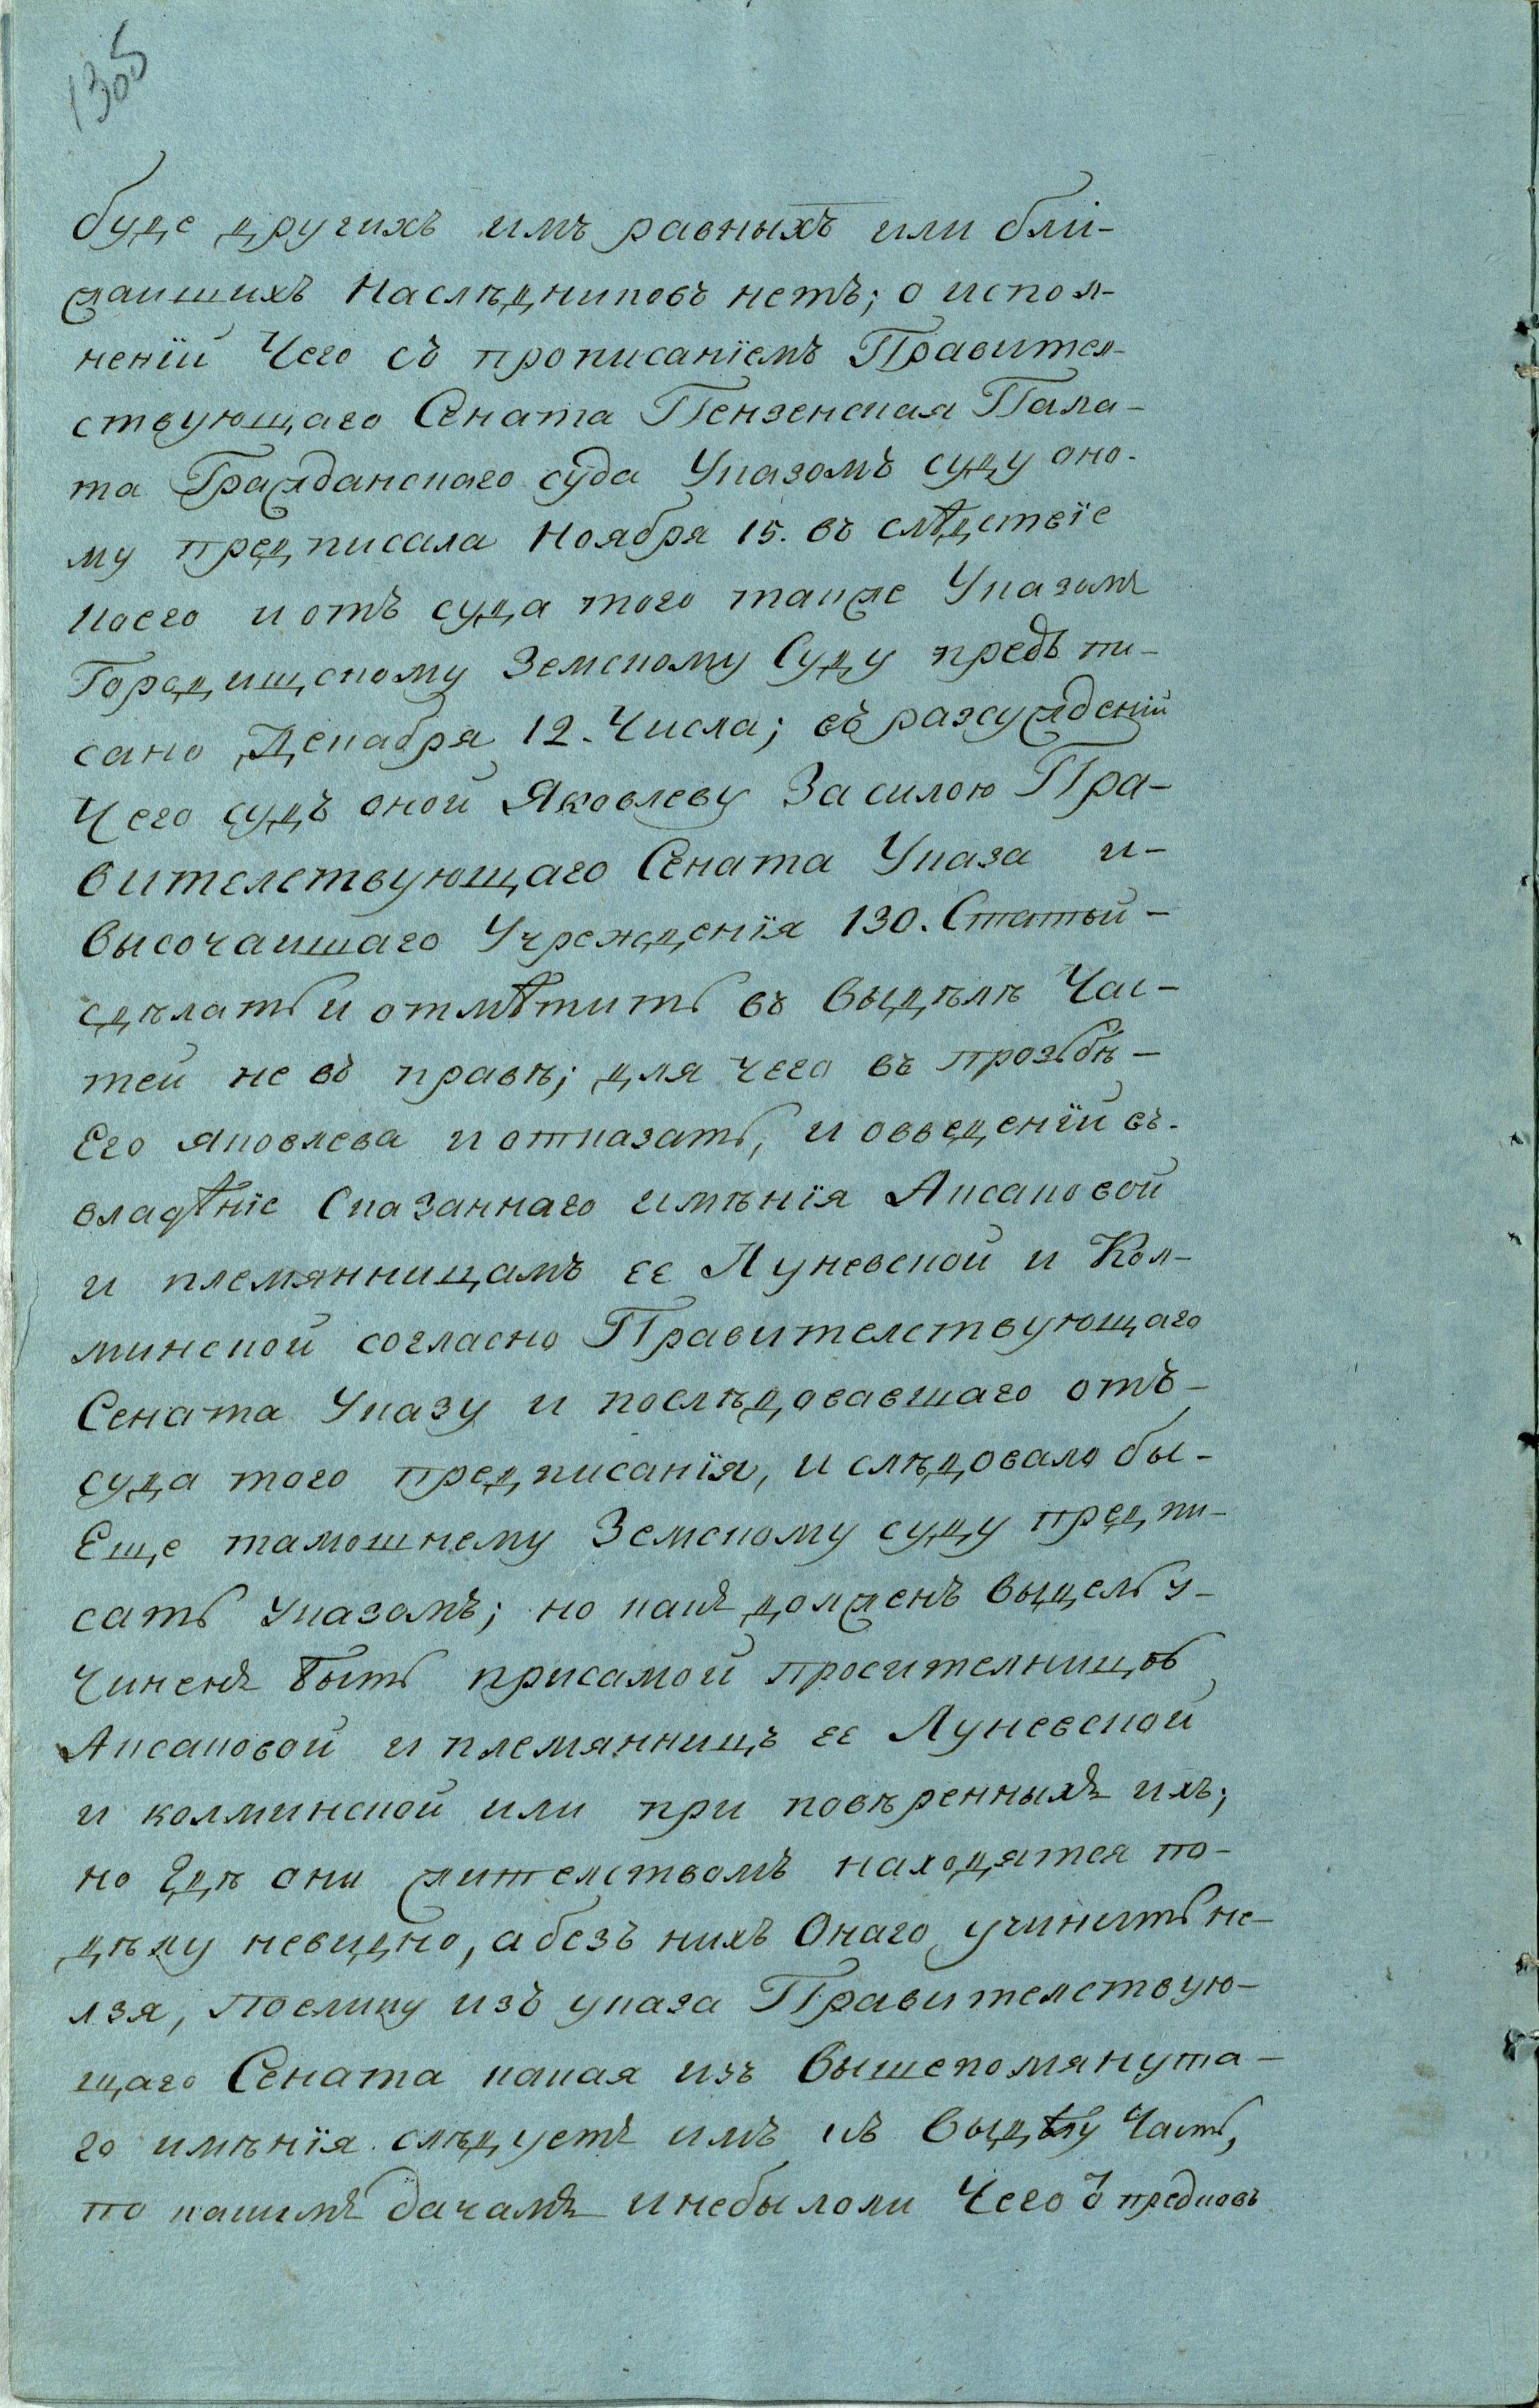 1305
буде другихъ имъ равныхъ или бли-
жаишихъ наслѣдниковъ нетъ; о испол-
ненїи Чего съ прописанїемъ Правител-
ствующаго Сената Пензенская Пала-
та Гражданскаго суда Указомъ суду оно-
му предписала Ноября 15. въ слѣдствїе
коего и отъ суда того также Указомъ
Городищскому Земскому Суду предъпи-
сано Декабря 12. Числа; въ разсужденїи
Чего судъ оной Яковлеву За силою Пра-
вителствующаго Сената Указа и-
высочаишаго Учрежденїя 130. Статьи-
сдѣлать и отмѣтить въ выдѣлѣ Час-
тей не въ правѣ; для чего въ прозьбѣ-
Его Яковлева и отказать, и овведенїи въ-
владѣнїе Сказаннаго имѣнїя Аксаковой
и племянницамъ ее Луневской и Кол-
минской согласно Правителствующаго
Сената Указу и послѣдовавшаго отъ-
суда того предписанїя, и слѣдовало бы-
Еще тамошнему Земскому суду предпи-
сать Указомъ; но какъ долженъ выделъ у-
Чиненъ быть присамой просителницѣ
Аксаковой и племянницъ ее Луневской
и колминской или при повѣренныхъ ихъ;
но Гдѣ они жителствомъ находятся по-
дѣлу невидно, а безъ нихъ Онаго учинить не-
лзя, Поелику изъ указа Правителствую-
щаго Сената какая изъ Вышепомянута-
го имѣнїя слѣдуетъ имъ къ выдѣлу Часть,
по какимъ дачамъ и небылоли Чего о предковъ